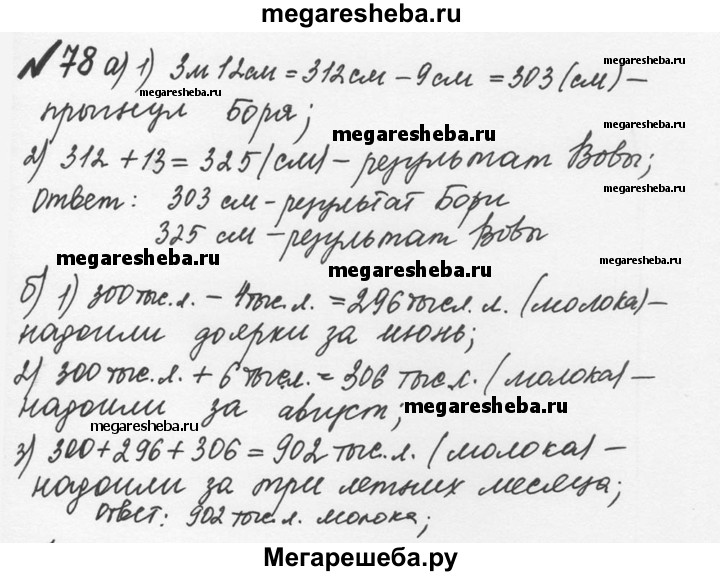 megaresheba.ru
№78 а) 1) 3м 12см = 312см – 9см = 303 (см) –
megaresheba.ru
прыгнул Боря;
megaresheba.ru
2) 312 + 13 = 325 (см) – результат Вовы;
megaresheba.ru
Ответ: 303 см – результат Бори
325 см – результат Вовы
megaresheba.ru
megaresheba.ru
б) 1) 300 тыс. л. – 4 тыс. л. = 296 тыс. л. (молока) –
надоили доярки за июнь;
2) 300 тыс. л. + 6 тыс. л. = 306 тыс. л. (молока) –
надоили за август;
megaresheba.ru
megaresheba.ru
3) 300 + 296 + 306 = 902 тыс. л. (молока) –
надоили за три летних месяца;
Ответ: 902 тыс. л. молока;
Мегарешеба.ру